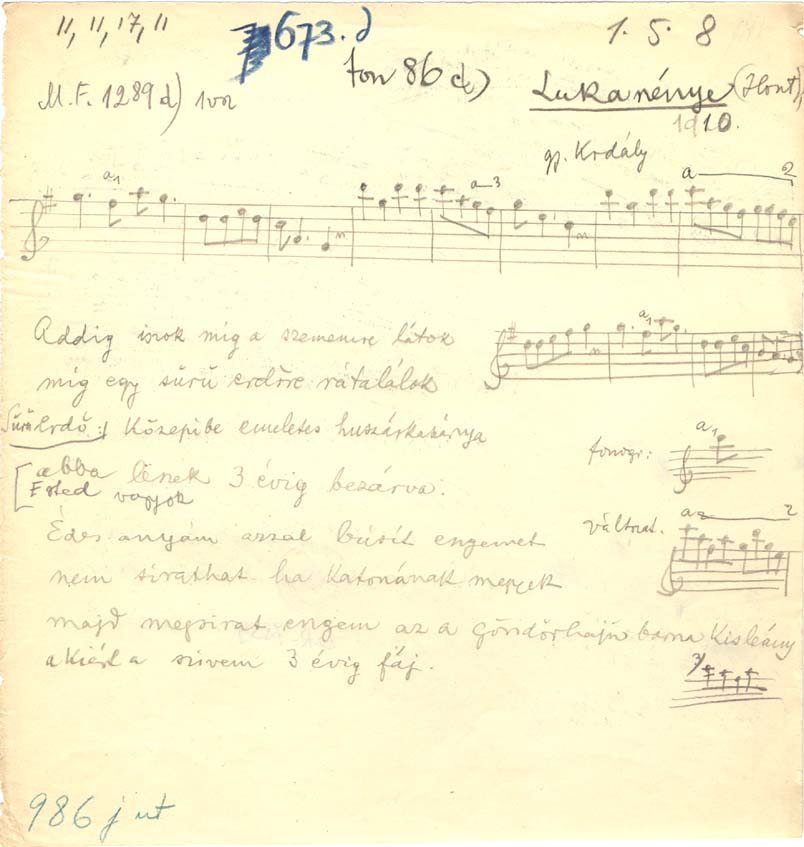 11, 11, 17, 11
673. d
1. 5. 8
fon 86 d)
M.F. 1289 d)
Lukanénye (Hont),
1910.
gy. Kodály
a1
a—3
a—2
Addig iszok míg a szememre látok
a1
míg egy sűrű erdőre rátalálok
Sűrű erdő :| Közepibe emeletes huszárkaszárnya
a1
fonogr:
abba lënek 3 évig bezárva.
Ested vagyok
változat.
a—2
Édes anyám azzal búsít engemet
nem sirathat ha katonának megyek
majd megsirat engem az a göndörhajú barna kisleány
akiért a szívem 3 évig fáj.
3)
986 j ut